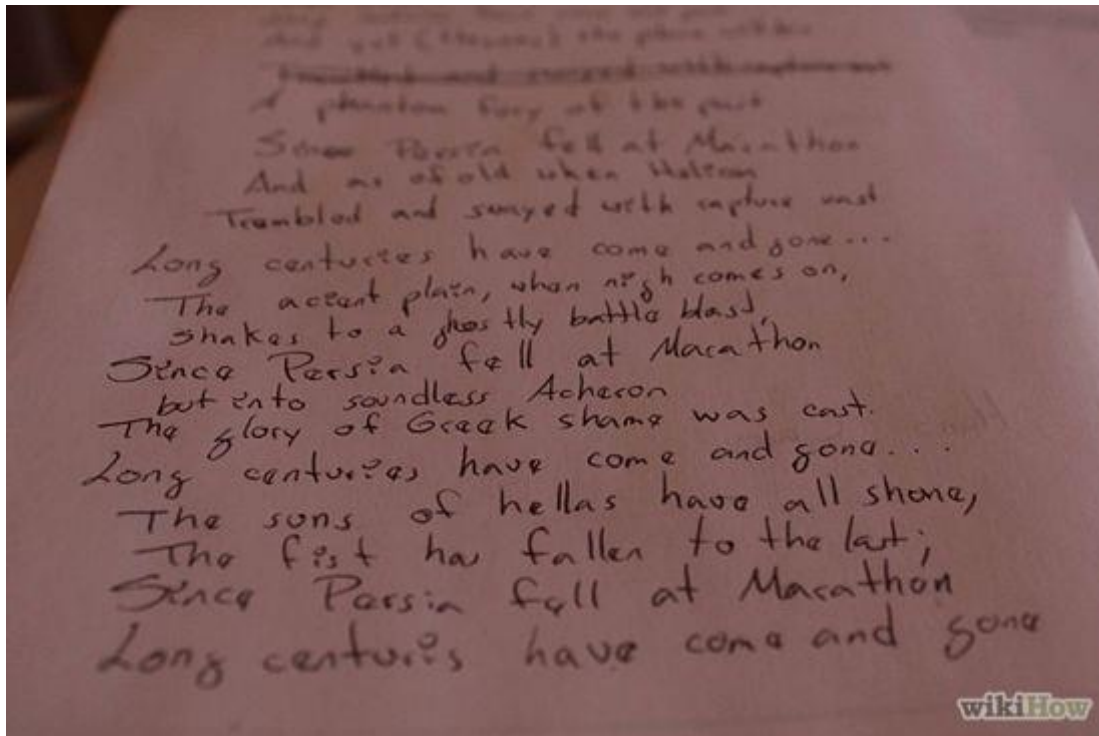 And yet (         ) the plain
A phantom fury of the past
Since Persia fell at Marathon
And as of old when Helicon
Trembled and swayed with rapture vast
Long centuries have come and gone...
The acient plain, when nigh comes on,
shakes to a ghostly battle blast,
Since Persia fell at Marathon
but into soundless Acheron
The glory of Greek shame was cast.
Long centuries have come and gone...
The suns of hellas have all shone,
The fist has fallen to the last;
Since Persia fell at Marathon
Long centuris have come and gone
wikiHow